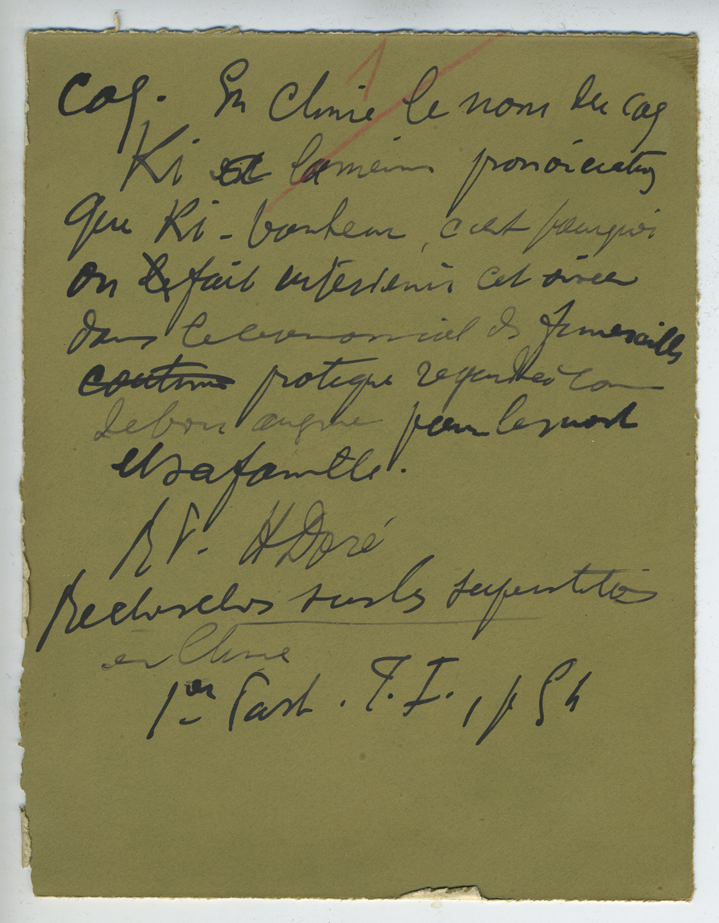 coq. En Chine le nom du coq
Ki est la même prononciation
que Ki - bonheur, c'est pourquoi
on le fait intervenir cet oiseau
dans le cérémonial des funérailles
coutume pratique regardée com
de bon augure pour le mort
et sa famille.
R P. H Doré
Recherches sur les superstitions
en Chine
1er Part. T. I. , p 54